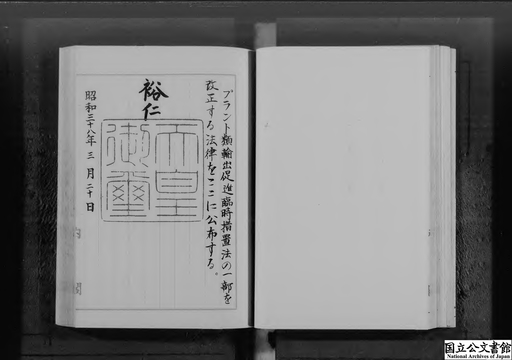 プラント類輸出促進臨時措置法の一部を
改正する法律をここに公布する。
裕仁
天皇
御璽
昭和三十八年三月二十日
内閣
国立公文書館
National Archives of Japan